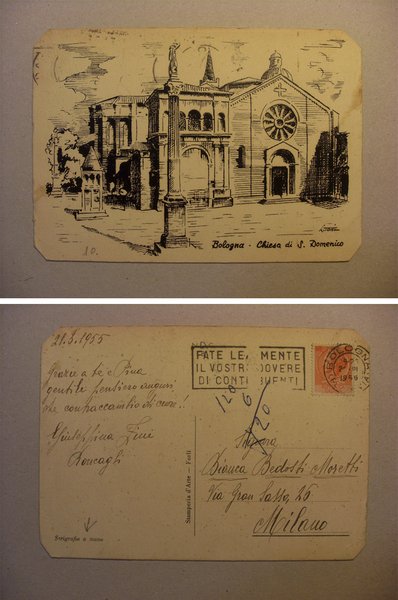 Bologna - Chiesa di S. Domenico
10.
21.6.1955
Grazie a te e Pina
gentile pensiero auguri
che contraccambio di cuore!
Giuseppina Zini
Roncagli
Serigrafia a mano
Stamperia d'Arte - Forlì
FATE LEALMENTE
IL VOSTRO DOVERE
DI CONTRIBUENTI
BOLOGNA
120
6
Signora
Bianca Bedosti Moretti
Via Gran Sasso, 25
Milano